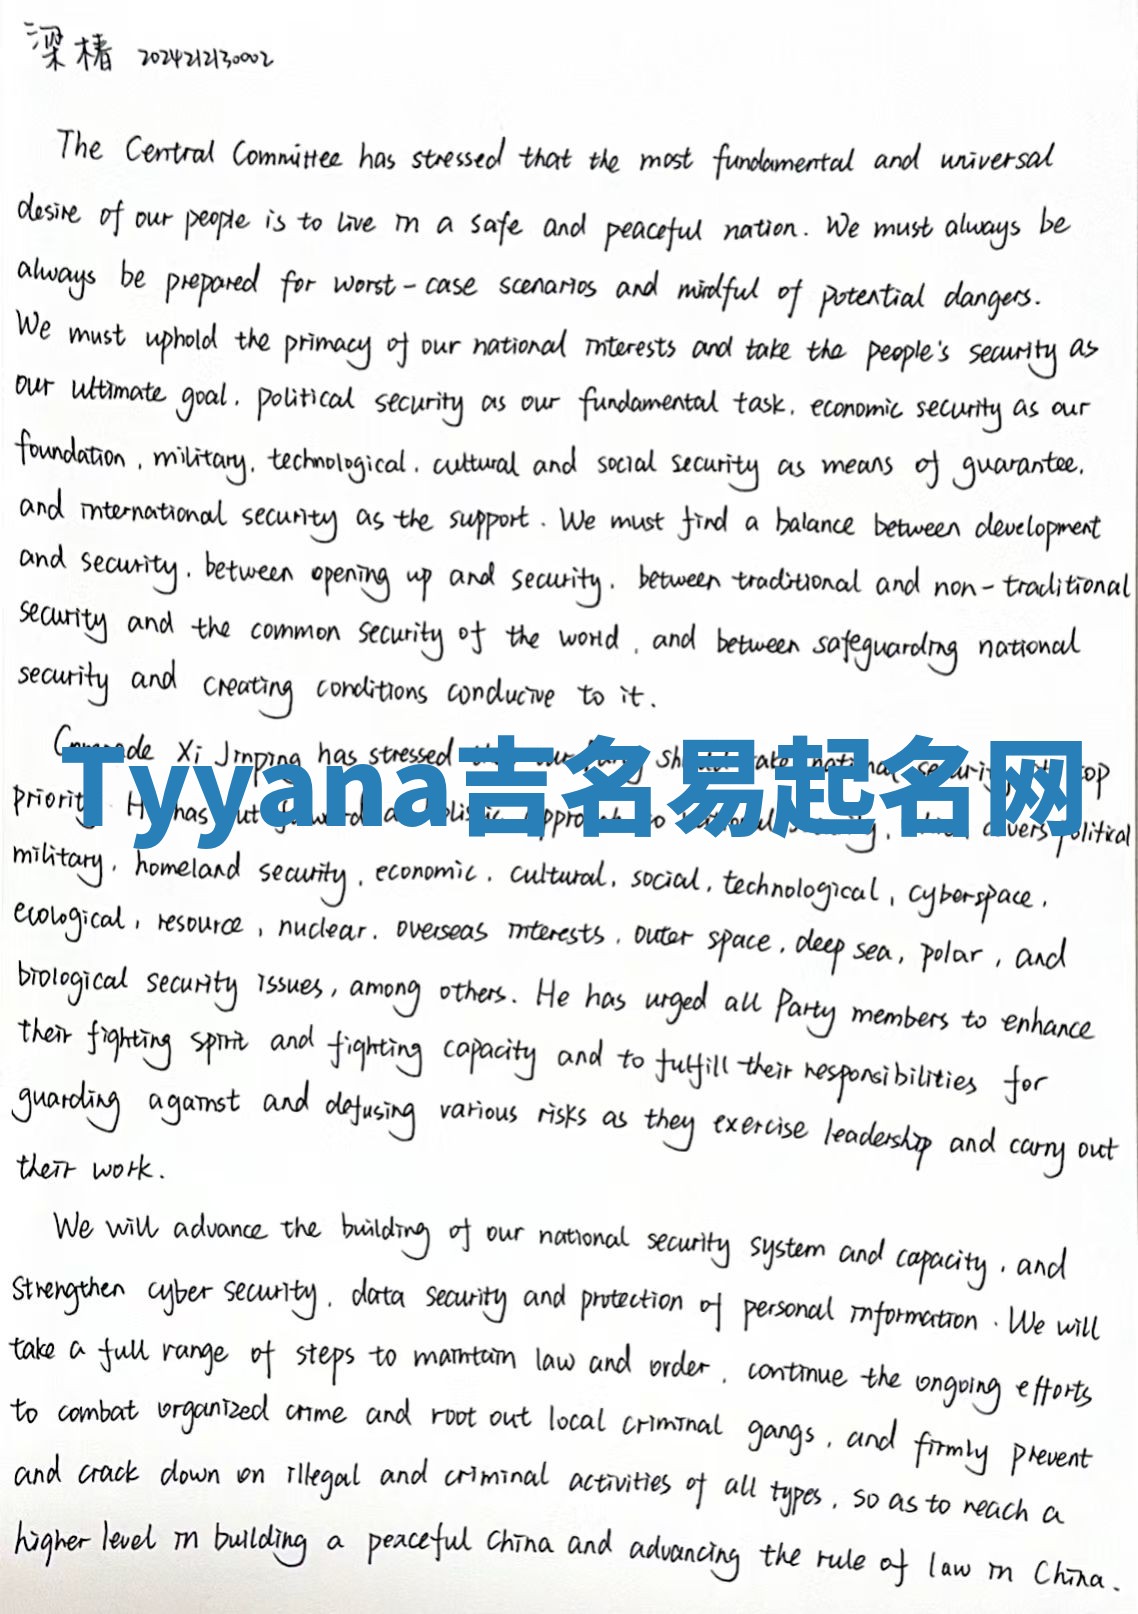 梁椿 2024212130002
The Central Committee has stressed that the most fundamental and universal
desire of our people is to live in a safe and peaceful nation. We must always be
always be prepared for worst-case scenarios and mindful of potential dangers.
We must uphold the primacy of our national interests and take the people's security as
our ultimate goal, political security as our fundamental task, economic security as our
foundation, military, technological, cultural and social security as means of guarantee,
and international security as the support. We must find a balance between development
and security, between opening up and security, between traditional and non-traditional
security and the common security of the world, and between safeguarding national
security and creating conditions conducive to it.
Xi Jinping has stressed
Tyyana吉名易起名网
has political
military, homeland security, economic, cultural, social, technological, cyberspace,
ecological, resource, nuclear, overseas interests, outer space, deep sea, polar, and
biological security issues, among others. He has urged all Party members to enhance
their fighting spirit and fighting capacity and to fulfill their responsibilities for
guarding against and defusing various risks as they exercise leadership and carry out
their work.
We will advance the building of our national security system and capacity, and
strengthen cyber security, data security and protection of personal information. We will
take a full range of steps to maintain law and order, continue the ongoing efforts
to combat organized crime and root out local criminal gangs, and firmly prevent
and crack down on illegal and criminal activities of all types, so as to reach a
higher level in building a peaceful China and advancing the rule of law in China.